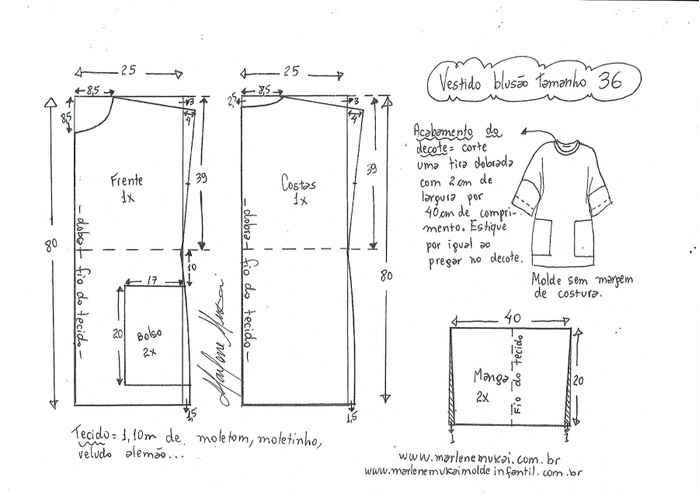 Vestido blusão tamanho 36
25
8,5
8,5
3
4
39
Frente
1x
80
- dobra - fio do tecido -
10
17
20
Bolso
2x
1,5
25
2,5
8,5
3
4
39
Costas
1x
80
- dobra - fio do tecido -
1,5
Marlene Mukai
Acabamento do
decote = corte
uma tira dobrada
com 2 cm de
largura por
40 cm de compri-
mento. Estique
por igual ao
pregar no decote.
Molde sem margem
de costura.
40
Manga
2x
Fio do tecido
20
1
1
Tecido = 1,10m de moletom, moletinho,
veludo alemão...
www.marlenemukai.com.br
www.marlenemukaimoldeinfantil.com.br